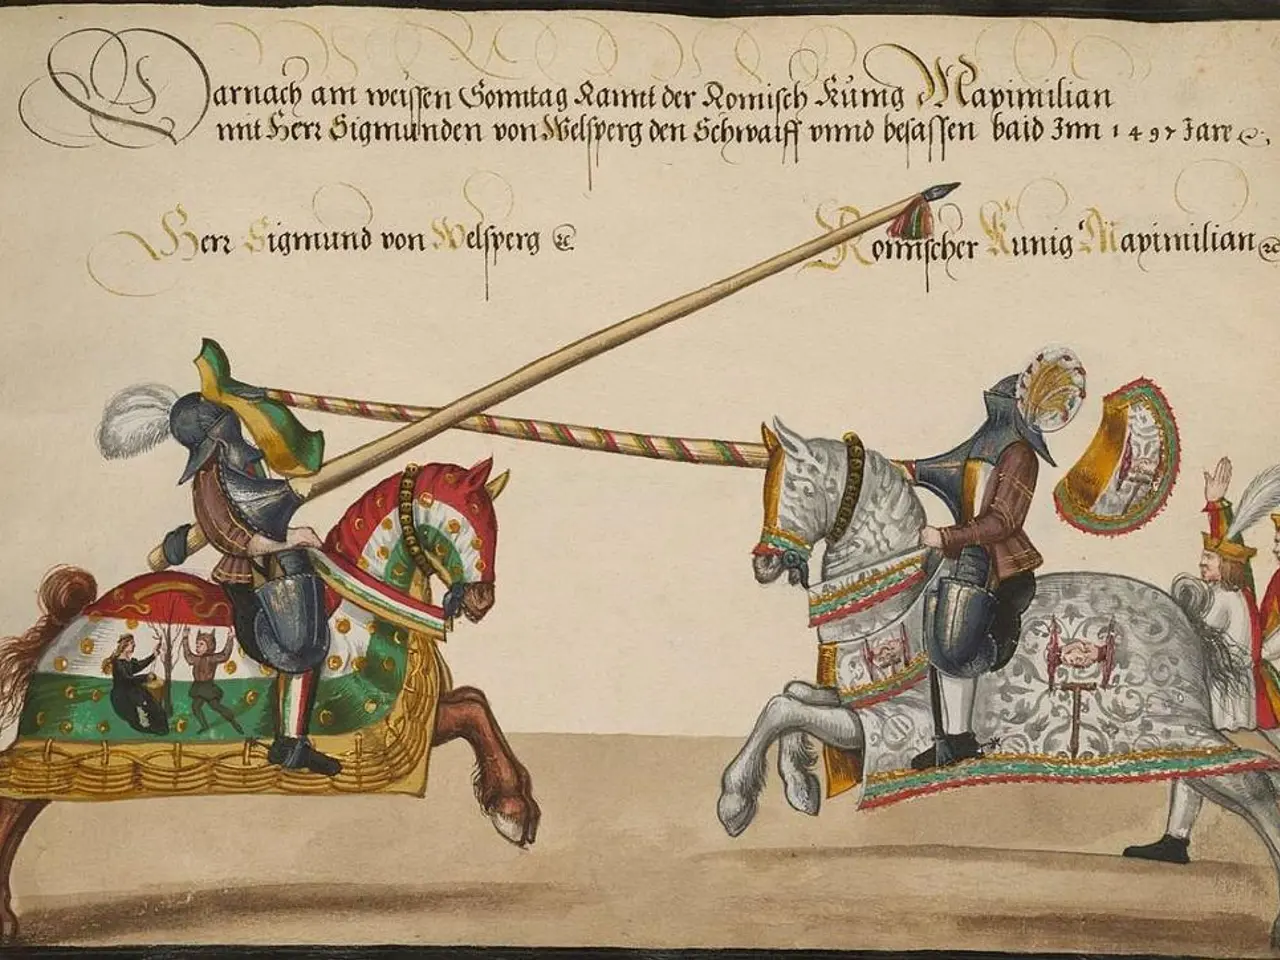 Darnach am weissen Sonntag Rannt der Romisch Kunig Maximilian
mit Herr Sigmunden von Welsperg den Schwaiff vnnd besassen baid Inn 1497 Jare ꝛc.
Herr Sigmund von Welsperg ꝛc.
Romischer Kunig Maximilian ꝛc.